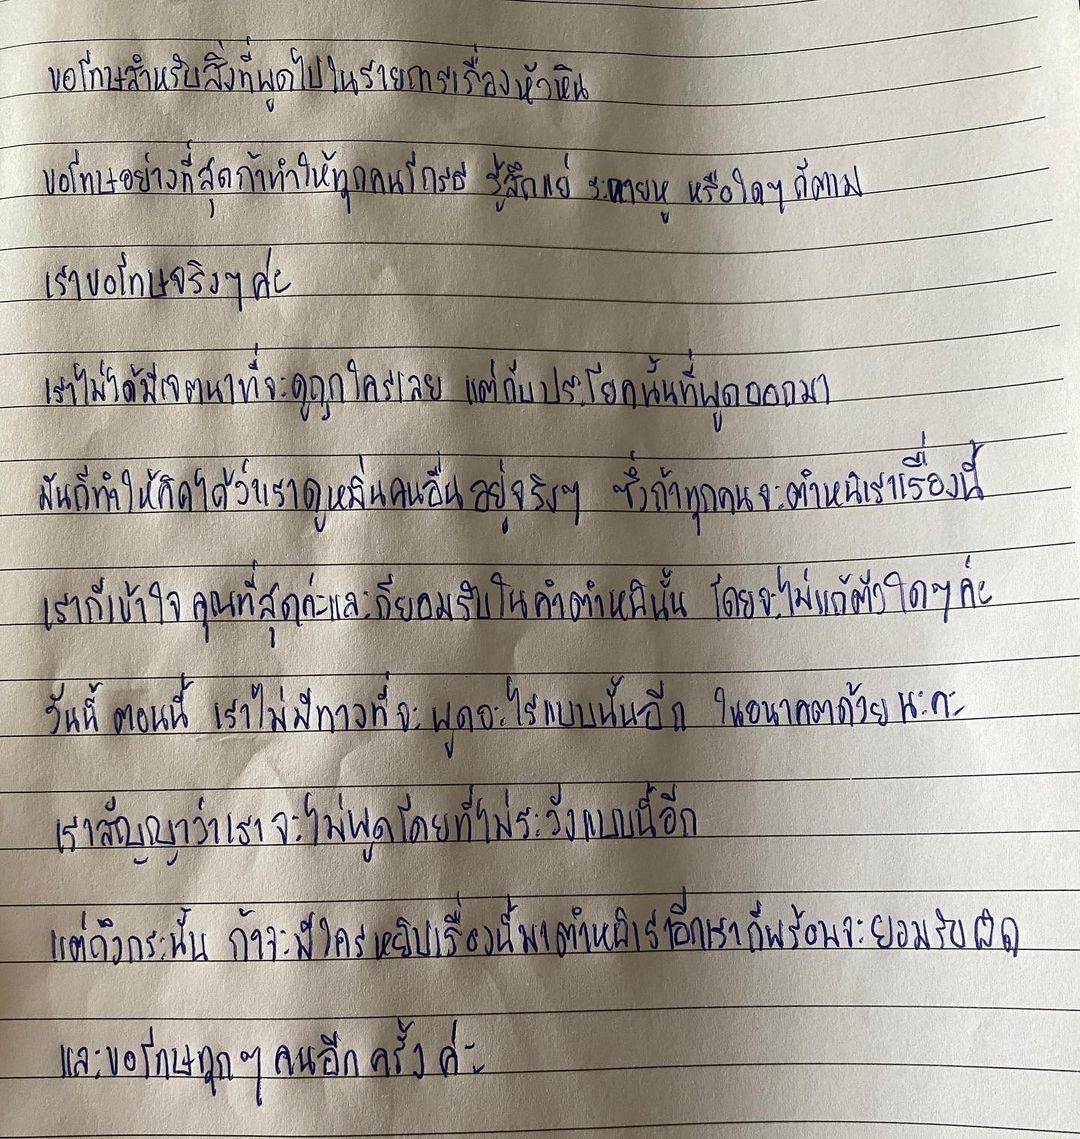 ขอโทษสำหรับสิ่งที่พูดไปในรายการเรื่องหัวหิน
ขอโทษอย่างที่สุดถ้าทำให้ทุกคนโกรธ รู้สึกแย่ ระคายหู หรือใดๆก็ตาม
เราขอโทษจริงๆค่ะ
เราไม่ได้มีเจตนาที่จะดูถูกใครเลย แต่กับประโยคนั้นที่พูดออกมา
มันก็ทำให้คิดได้ว่าเราดูหมิ่นคนอื่นอยู่จริงๆ ซึ่งถ้าทุกคนจะตำหนิเราเรื่องนี้
เราก็เข้าใจคุณที่สุดค่ะและก็ยอมรับในคำตำหนินั้น โดยจะไม่แก้ตัวใดๆค่ะ
วันนี้ ตอนนี้ เราไม่มีทางที่จะพูดอะไรแบบนั้นอีก ในอนาคตด้วยนะคะ
เราสัญญาว่าเราจะไม่พูดโดยที่ไม่ระวังแบบนี้อีก
แต่ถึงกระนั้น ถ้าจะมีใครหยิบเรื่องนี้มาตำหนิเราอีกเราก็พร้อมจะยอมรับผิด
และขอโทษทุกๆคนอีกครั้งค่ะ